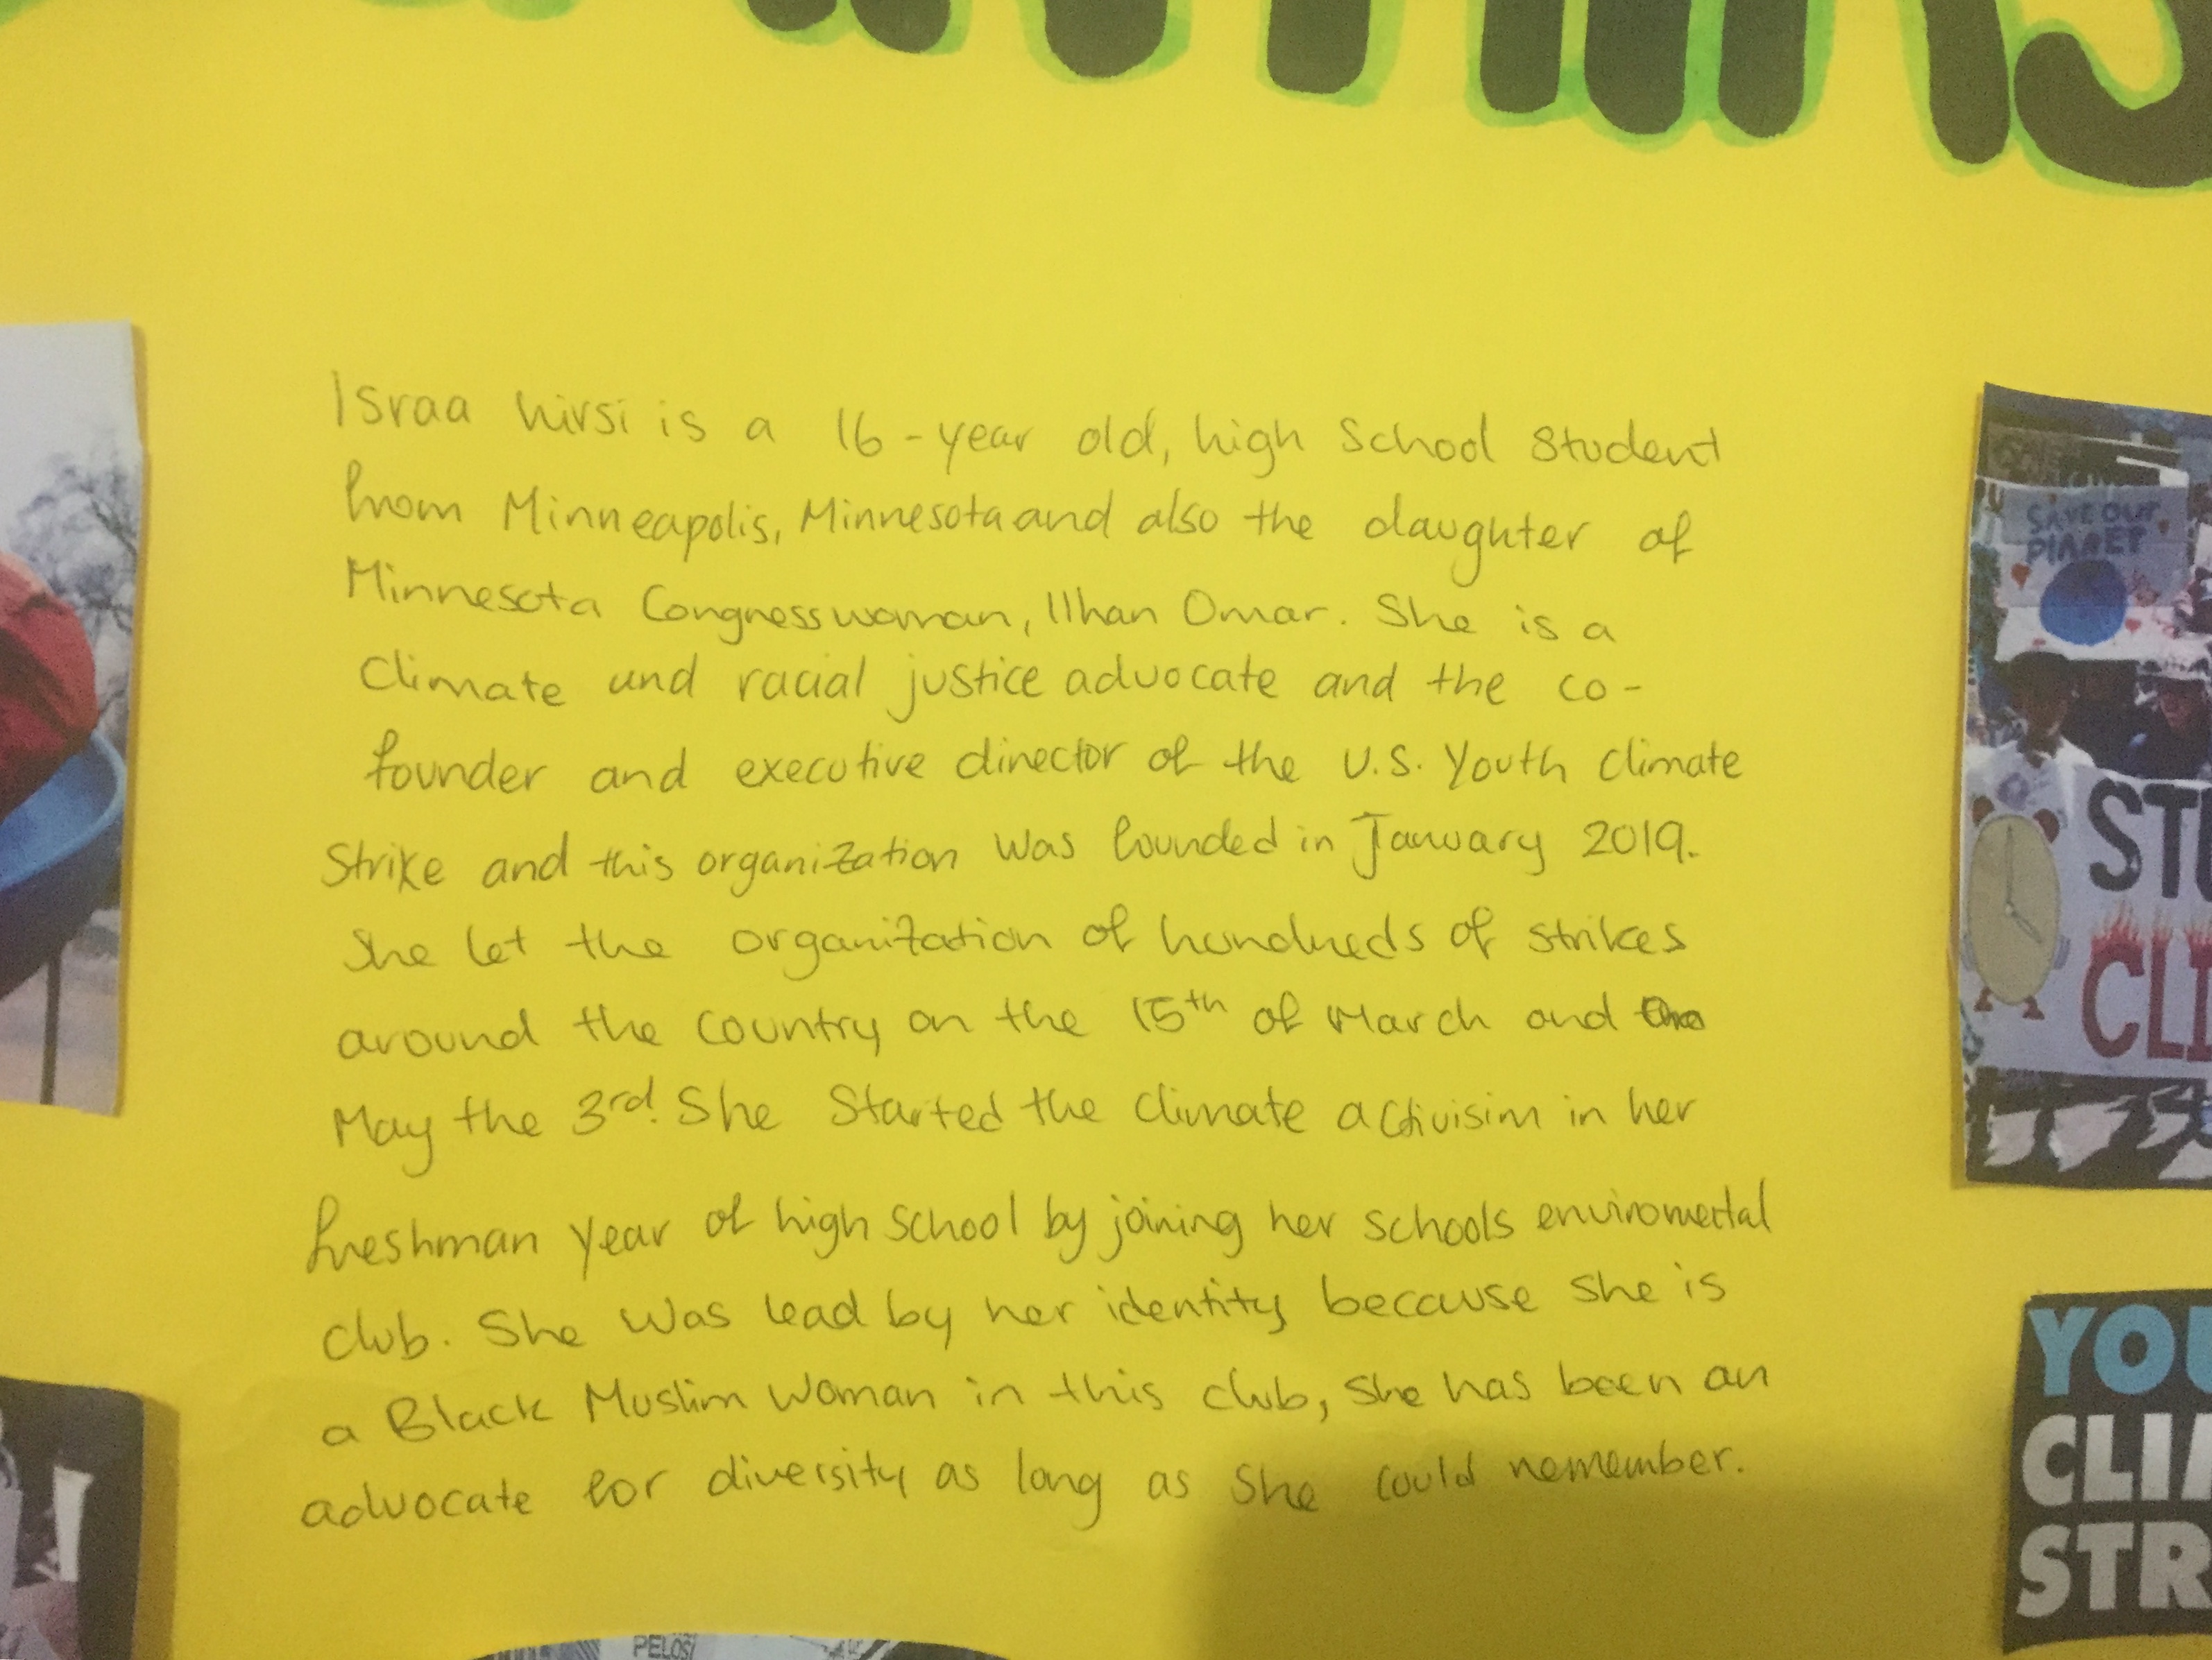 Israa hirsi is a 16-year old, high school student
from Minneapolis, Minnesota and also the daughter of
Minnesota Congresswoman, Ilhan Omar. She is a
Climate and racial justice advocate and the co-
founder and executive director of the U.S. Youth Climate
Strike and this organization was founded in January 2019.
She let the organization of hundreds of strikes
around the country on the 15th of March and
May the 3rd. She started the climate activisim in her
freshman year of high school by joining her schools enviromental
club. She was lead by her identity because she is
a Black Muslim Woman in this club, she has been an
advocate for diversity as long as she could remember.
SAVE OUR
PLANET
ST
CLI
YOU
CLI
STR
PELOSI